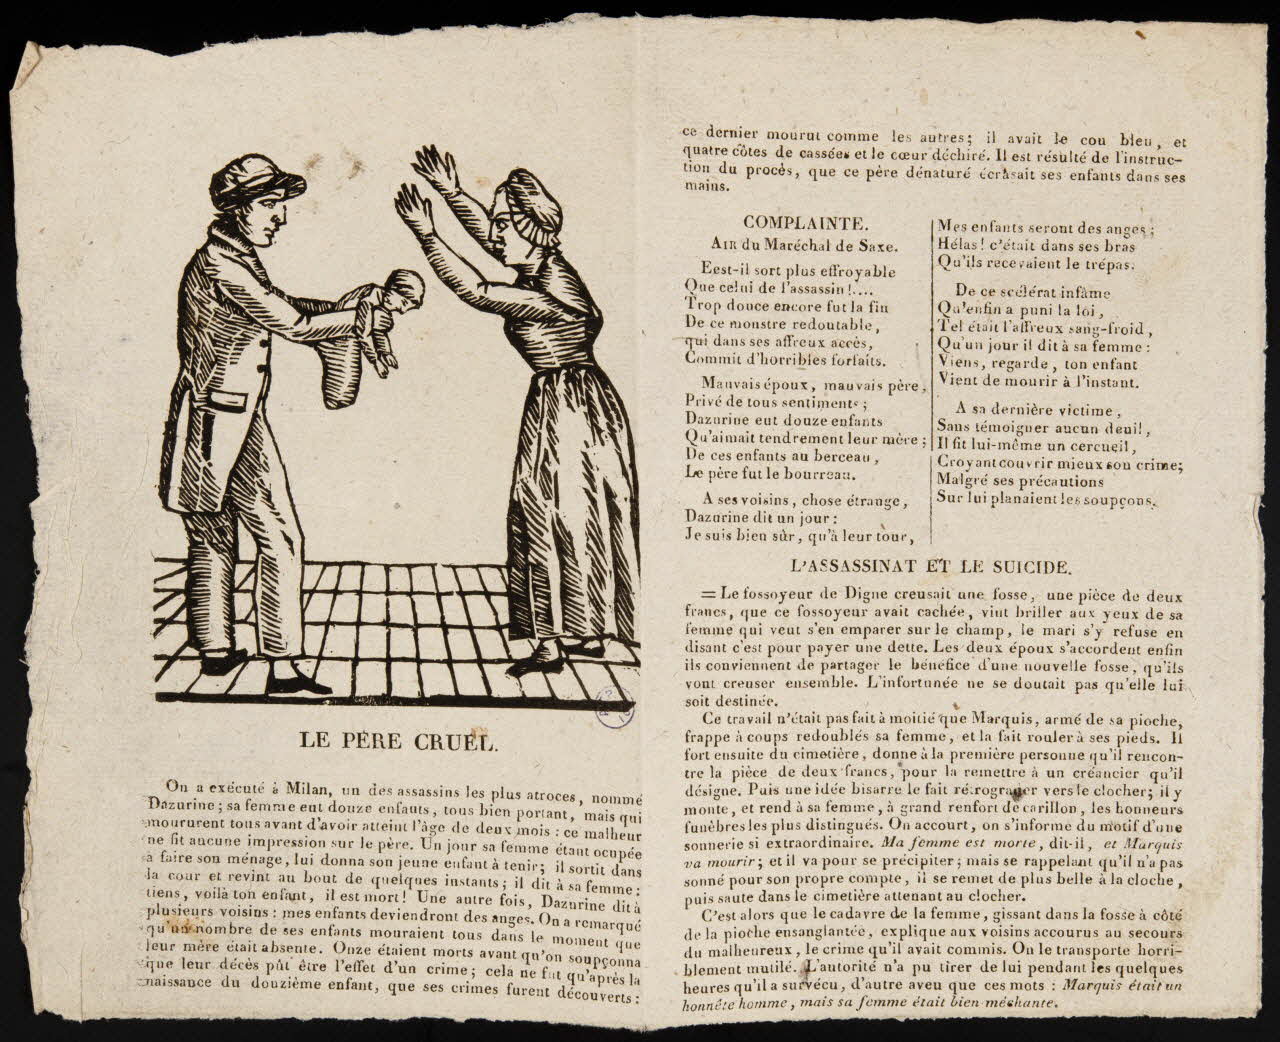 LE PÈRE CRUEL.
On a exécuté à Milan, un des assassins les plus atroces, nommé
Dazurine; sa femme eut douze enfants, tous bien portant, mais qui
moururent tous avant d'avoir atteint l'âge de deux mois : ce malheur
ne fit aucune impression sur le père. Un jour sa femme étant ocupée
à faire son ménage, lui donna son jeune enfant à tenir; il sortit dans
la cour et revint au bout de quelques instants; il dit à sa femme :
tiens, voilà ton enfant, il est mort! Une autre fois, Dazurine dit à
plusieurs voisins : mes enfants deviendront des anges. On a remarqué
qu'un nombre de ses enfants mouraient tous dans le moment que
leur mère était absente. Onze étaient morts avant qu'on soupçonna
que leur décès pût être l'effet d'un crime; cela ne fut qu'après la
naissance du douzième enfant, que ses crimes furent découverts :
ce dernier mourut comme les autres; il avait le cou bleu, et
quatre côtes de cassées et le cœur déchiré. Il est résulté de l'instruc-
tion du procès, que ce père dénaturé écrasait ses enfants dans ses
mains.
COMPLAINTE.
AIR du Maréchal de Saxe.
Eest-il sort plus effroyable
Que celui de l'assassin!....
Trop douce encore fut la fin
De ce monstre redoutable,
qui dans ses affreux accès,
Commit d'horribles forfaits.
Mauvais époux, mauvais père,
Privé de tous sentiments;
Dazurine eut douze enfants
Qu'aimait tendrement leur mère;
De ces enfants au berceau,
Le père fut le bourreau.
A ses voisins, chose étrange,
Dazurine dit un jour :
Je suis bien sûr, qu'à leur tour,
Mes enfants seront des anges;
Hélas! c'était dans ses bras
Qu'ils recevaient le trépas.
De ce scélérat infâme
Qu'enfin a puni la loi,
Tel était l'affreux sang-froid,
Qu'un jour il dit à sa femme :
Viens, regarde, ton enfant
Vient de mourir à l'instant.
A sa dernière victime,
Sans témoigner aucun deuil,
Il fit lui-même un cercueil,
Croyant couvrir mieux son crime;
Malgré ses précautions
Sur lui planaient les soupçons.
L'ASSASSINAT ET LE SUICIDE.
= Le fossoyeur de Digne creusait une fosse, une pièce de deux
francs, que ce fossoyeur avait cachée, vint briller aux yeux de sa
femme qui veut s'en emparer sur le champ, le mari s'y refuse en
disant c'est pour payer une dette. Les deux époux s'accordent enfin
ils conviennent de partager le bénéfice d'une nouvelle fosse, qu'ils
vont creuser ensemble. L'infortunée ne se doutait pas qu'elle lui
soit destinée.
Ce travail n'était pas fait à moitié que Marquis, armé de sa pioche,
frappe à coups redoublés sa femme, et la fait rouler à ses pieds. Il
fort ensuite du cimetière, donne à la première personne qu'il rencon-
tre la pièce de deux francs, pour la remettre à un créancier qu'il
désigne. Puis une idée bisarre le fait rétrograder vers le clocher; il y
monte, et rend à sa femme, à grand renfort de carillon, les honneurs
funèbres les plus distingués. On accourt, on s'informe du motif d'une
sonnerie si extraordinaire. Ma femme est morte, dit-il, et Marquis
va mourir; et il va pour se précipiter; mais se rappelant qu'il n'a pas
sonné pour son propre compte, il se remet de plus belle à la cloche,
puis saute dans le cimetière attenant au clocher.
C'est alors que le cadavre de la femme, gissant dans la fosse à côté
de la pioche ensanglantée, explique aux voisins accourus au secours
du malheureux, le crime qu'il avait commis. On le transporte horri-
blement mutilé. L'autorité n'a pu tirer de lui pendant les quelques
heures qu'il a survécu, d'autre aveu que ces mots : Marquis était un
honnête homme, mais sa femme était bien méchante.